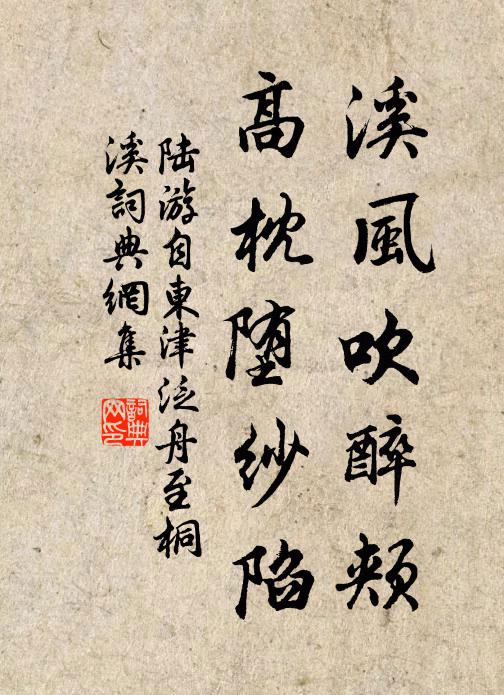 溪風吹醉頰
高枕堕紗陷
陆游自東津泛舟至桐
溪詞典網集
詞典
网印